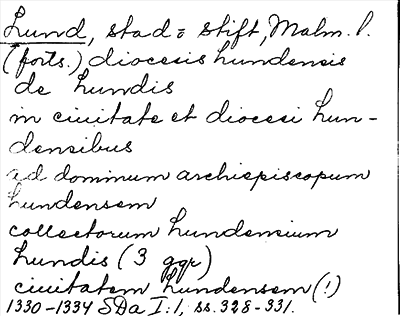 Lund, stad = stift, Malm. l.
(forts.) diocesis lundensis
de Lundis
in ciuitate et diocesi Lun-
densibus
ad dominum archiepiscopum
lundensem
collectorum Lundensium
Lundis (3 ggr)
ciuitatem Lundensem (!)
1330-1334 SDa I:1, ss. 328-331.